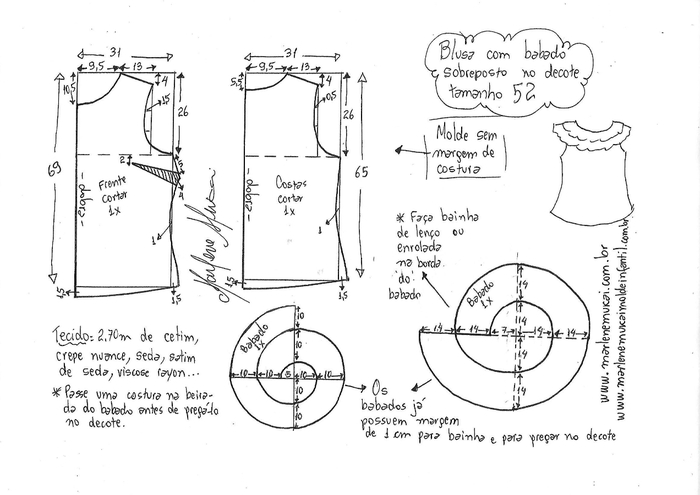 Blusa com babado
sobreposto no decote
tamanho 52
Molde sem
margem de
costura
31
9,5
13
4
10,5
1,5
26
69
2
3
4
dobra
Frente
cortar
1x
1
1,5
1,5
31
9,5
13
4
5,5
0,5
26
65
dobra
Costas
cortar
1x
1
1,5
Marlene Mukai
* Faça bainha
de lenço ou
enrolada
na borda
do
babado
Babado
1x
14
14
14
14
7
14
14
14
14
www.marlenemukai.com.br
www.marlenemukaimoldeinfantil.com.br
Tecido: 2,70m de cetim,
crepe nuance, seda, satim
de seda, viscose rayon...
* Passe uma costura na beira-
da do babado antes de pregá-lo
no decote.
Babado
1x
10
10
10
10
5
10
10
10
10
Os
babados já
possuem margem
de 1 cm para bainha e para pregar no decote